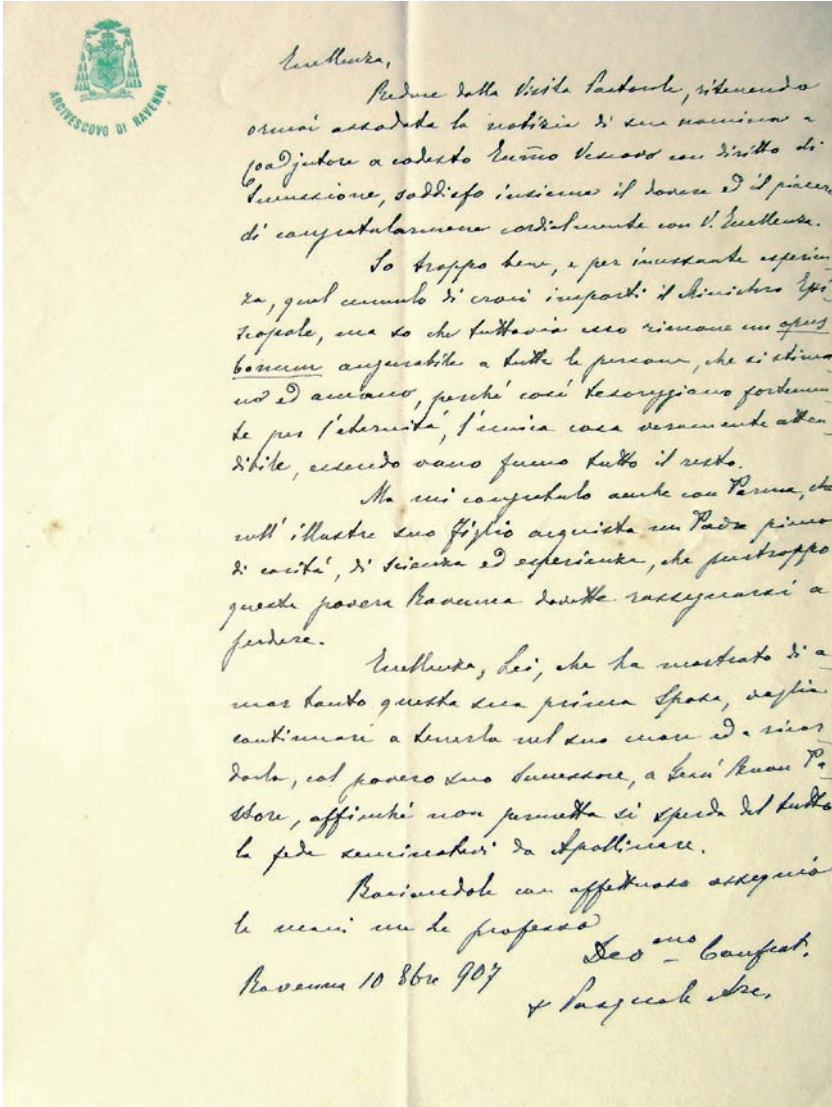 ARCIVESCOVO DI RAVENNA
Eccellenza,
Reduce dalla Visita Pastorale, ritenendo
ormai assodata la notizia di sua nomina a
Coadjutore a codesto Ecc̄mo Vescovo con diritto di
Successione, soddisfo insieme il dovere ed il piacere
di congratularmene cordialmente con V. Eccellenza.
So troppo bene, e per incessante esperien-
za, qual cumulo di croci importi il Ministero Epi-
scopale, ma so che tuttavia esso rimane un opus
bonum augurabile a tutte le persone, che si stima-
no ed amano, perché così tesoreggiano fortemen-
te per l'eternità, l'unica cosa veramente atten-
dibile, essendo vano fumo tutto il resto.
Ma mi congratulo anche con Parma, che
nell'illustre suo Figlio acquista un Padre pieno
di carità, di scienza ed esperienza, che purtroppo
questa povera Ravenna dovette rassegnarsi a
perdere.
Eccellenza, Lei, che ha mostrato di a-
mar tanto questa sua prima Sposa, voglia
continuare a tenerla nel suo cuore ed a ricor-
darla, col povero suo Successore, a Gesù Buon Pa-
store, affinché non permetta si sperda del tutto
la fede seminatavi da Apollinare.
Baciandole con affettuoso ossequio
le mani me Le professo
Dev.mo Confrat.
Ravenna 10 8bre 907
+ Pasquale Arc.